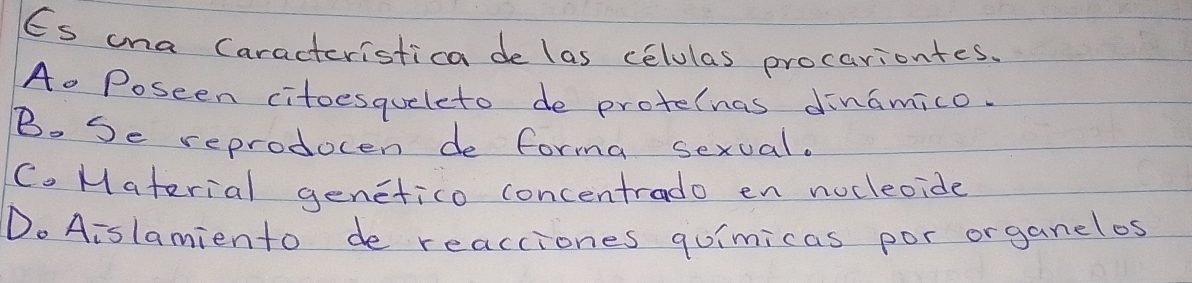 Es una característica de las células procariontes.
A. Poseen citoesqueleto de proteínas dinámico.
B. Se reproducen de forma sexual.
C. Material genético concentrado en nucleoide
D. Aislamiento de reacciones químicas por organelos